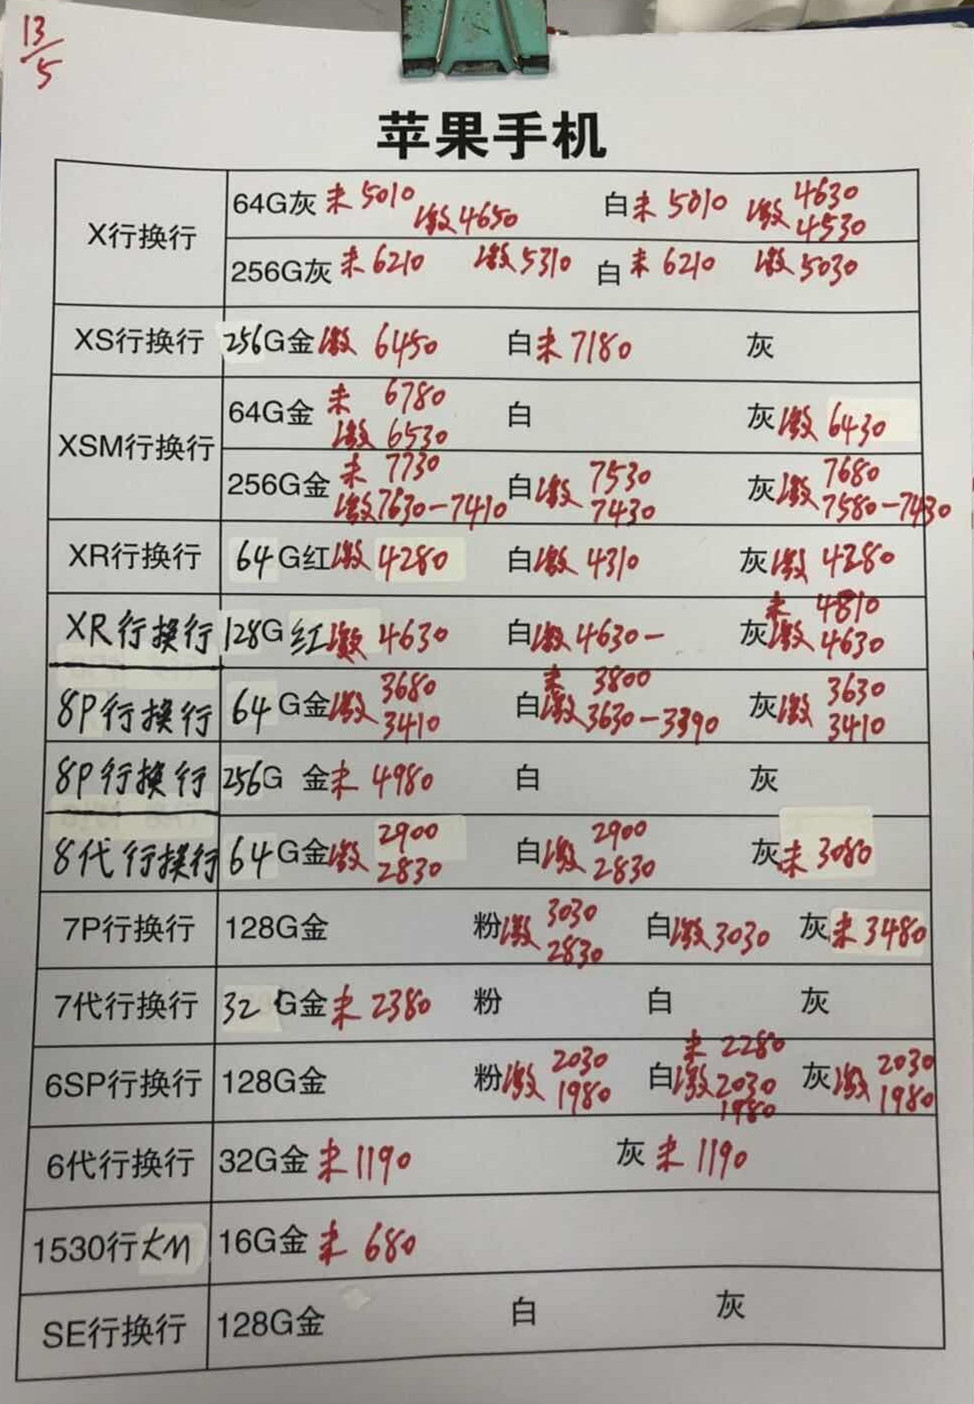 13/5
苹果手机
X行换行 64G灰 未 5010 激 4650 白 未 5010 激 4630 4530
256G灰 未 6210 激 5310 白 未 6210 激 5030
XS行换行 256G金 激 6450 白 未 7180 灰
XSM行换行 64G金 未 6780 激 6530 白 灰 激 6430
256G金 未 7730 激 7630-7410 白 激 7530 7430 灰 激 7680 7580-7430
XR行换行 64G红 激 4280 白 激 4310 灰 激 4280
XR行换行 128G红 激 4630 白 激 4630- 灰 未 4810 激 4630
8P行换行 64G金 激 3680 3410 白 未 3800 激 3630-3390 灰 激 3630 3410
8P行换行 256G 金 未 4980 白 灰
8代行换行 64G金 激 2900 2830 白 激 2900 2830 灰 未 3080
7P行换行 128G金 粉 激 3030 2830 白 激 3030 灰 未 3480
7代行换行 32G金 未 2380 粉 白 灰
6SP行换行 128G金 粉 激 2030 1980 白 未 2280 激 2030 1980 灰 激 2030 1980
6代行换行 32G金 未 1190 灰 未 1190
1530行 16G金 未 680
SE行换行 128G金 白 灰